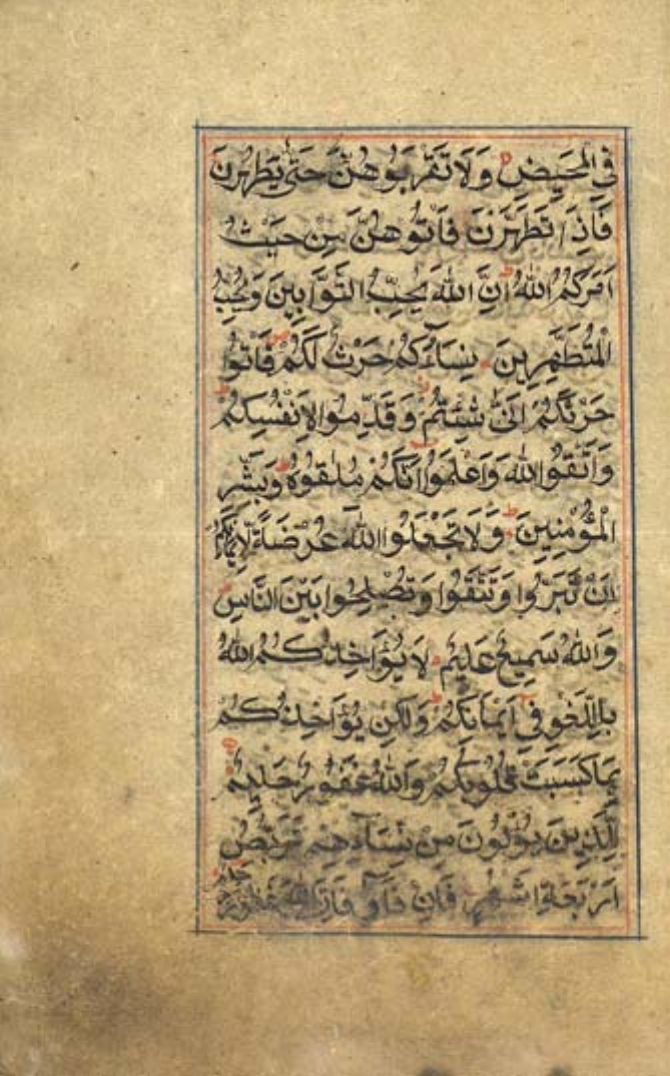 فِى الْمَحِيضِ وَلَا تَقْرَبُوهُنَّ حَتّٰى يَطْهُرْنَ
فَاِذَا تَطَهَّرْنَ فَاْتُوهُنَّ مِنْ حَيْثُ
اَمَرَكُمُ اللّٰهُ اِنَّ اللّٰهَ يُحِبُّ التَّوَّابِينَ وَيُحِبُّ
الْمُتَطَهِّرِينَ نِسَاؤُكُمْ حَرْثٌ لَكُمْ فَاْتُوا
حَرْثَكُمْ اَنّٰى شِئْتُمْ وَقَدِّمُوا لِاَنْفُسِكُمْ
وَاتَّقُوا اللّٰهَ وَاعْلَمُوا اَنَّكُمْ مُلٰقُوهُ وَبَشِّرِ
الْمُؤْمِنِينَ وَلَا تَجْعَلُوا اللّٰهَ عُرْضَةً لِاَيْمَانِكُمْ
اَنْ تَبَرُّوا وَتَتَّقُوا وَتُصْلِحُوا بَيْنَ النَّاسِ
وَاللّٰهُ سَمِيعٌ عَلِيمٌ لَا يُؤَاخِذُكُمُ اللّٰهُ
بِاللَّغْوِ فِى اَيْمَانِكُمْ وَلٰكِنْ يُؤَاخِذُكُمْ
بِمَا كَسَبَتْ قُلُوبُكُمْ وَاللّٰهُ غَفُورٌ حَلِيمٌ
لِلَّذِينَ يُؤْلُونَ مِنْ نِسَآئِهِمْ تَرَبُّصُ
اَرْبَعَةِ اَشْهُرٍ فَاِنْ فَآؤُ فَاِنَّ اللّٰهَ غَفُورٌ